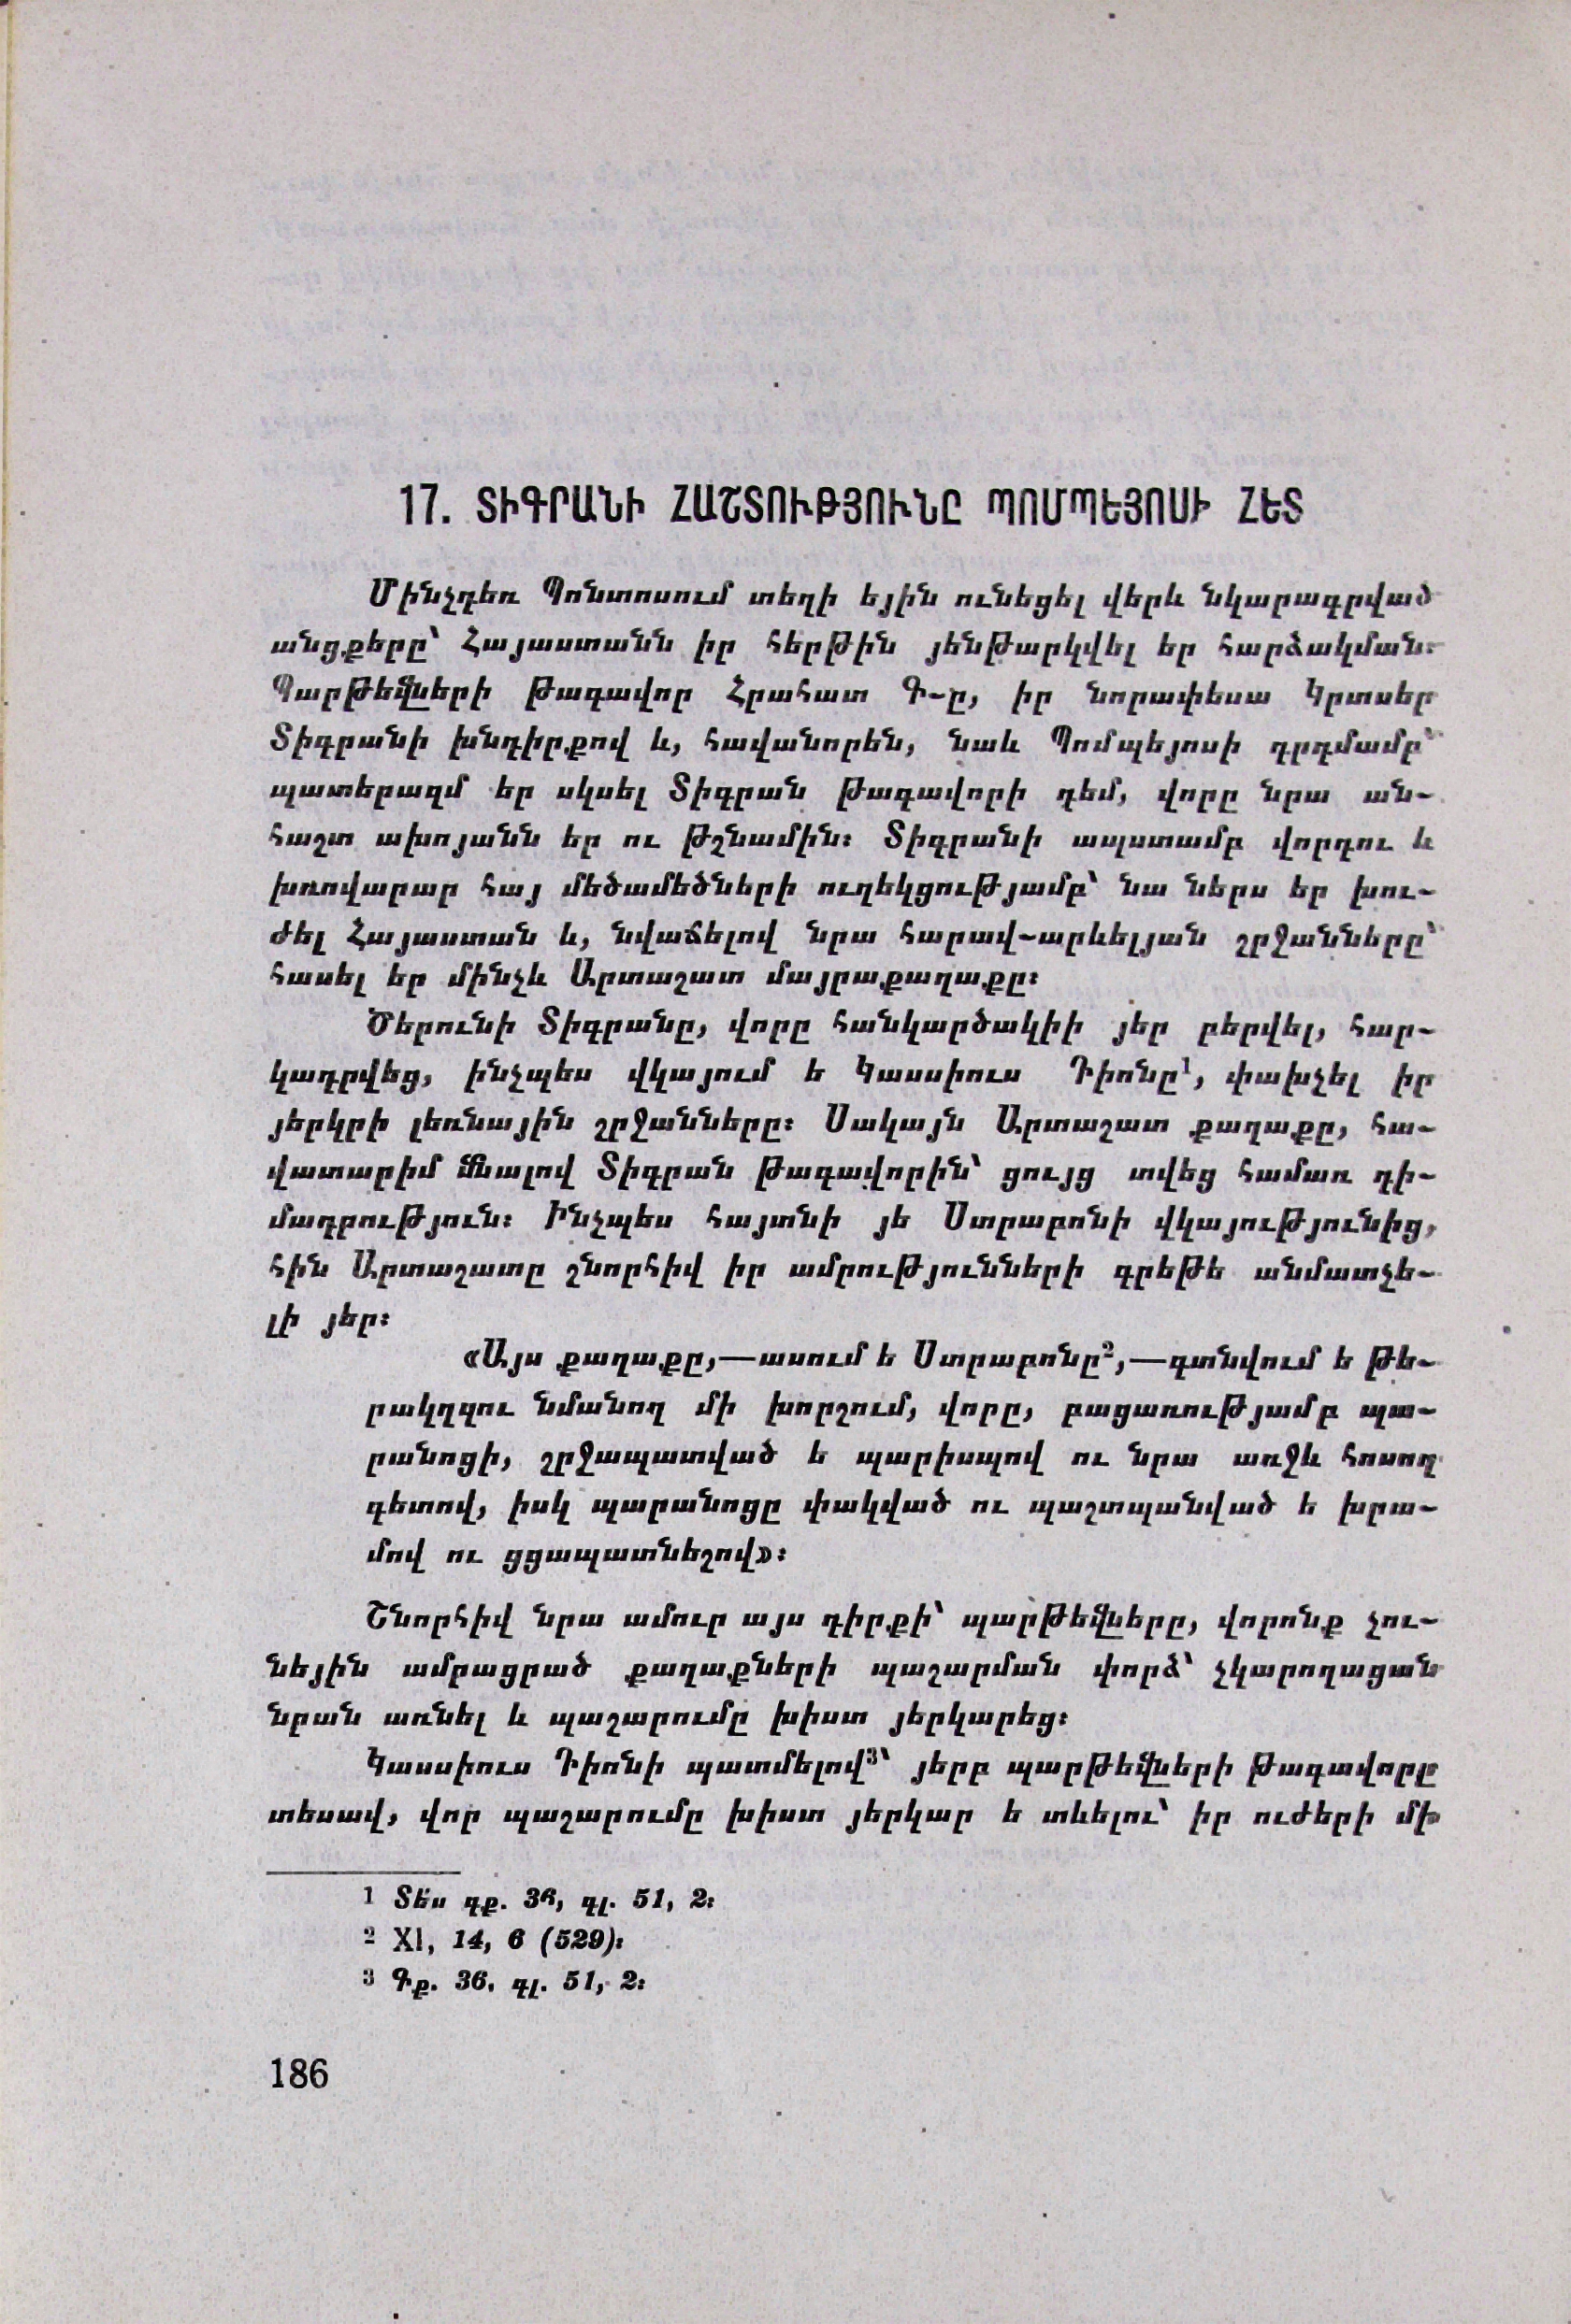 17. ՏԻԳՐԱՆԻ ՀԱՇՏՈՒԹՅՈՒՆԸ ՊՈՄՊԵՅՈՍԻ ՀԵՏ
Մինչդեռ Պոնտոսում տեղի եյին ունեցել վերև նկարագրված
անցքերը՝ Հայաստանն իր հերթին յենթարկվել եր հարձակման։
Պարթեվների թագավոր Հրահատ Գ-ը, իր նորափեսա Կրտսեր
Տիգրանի խնդիրքով և, հավանորեն, նաև Պոմպեյոսի դրդմամբ՝
պատերազմ եր սկսել Տիգրան թագավորի դեմ, վորը նրա ան-
հաշտ ախոյանն եր ու թշնամին։ Տիգրանի ապստամբ վորդու և
խռովարար հայ մեծամեծների ուղեկցությամբ՝ նա ներս եր խու-
ժել Հայաստան և, նվաճելով նրա հարավ-արևելյան շրջանները՝
հասել եր մինչև Արտաշատ մայրաքաղաքը։
Ծերունի Տիգրանը, վորը հանկարծակիի յեր բերվել, հար-
կադրվեց, ինչպես վկայում ե Կասսիուս Դիոնը¹, փախչել իր
յերկրի լեռնային շրջանները։ Սակայն Արտաշատ քաղաքը, հա-
վատարիմ մնալով Տիգրան թագավորին՝ ցույց տվեց համառ դի-
մադրություն։ Ինչպես հայտնի յե Ստրաբոնի վկայությունից,
հին Արտաշատը շնորհիվ իր ամրությունների գրեթե անմատչե-
լի յեր։
«Այս քաղաքը,—ասում ե Ստրաբոնը²,—գտնվում ե թե-
րակղզու նմանող մի խորշում, վորը, բացառությամբ պա-
րանոցի, շրջապատված ե պարիսպով ու նրա առջև հոսող
գետով, իսկ պարանոցը փակված ու պաշտպանված ե խրա-
մով ու ցցապատնեշով»։
Շնորհիվ նրա ամուր այս դիրքի՝ պարթեվները, վորոնք չու-
նեյին ամրացրած քաղաքների պաշարման փորձ՝ չկարողացան
նրան առնել և պաշարումը խիստ յերկարեց։
Կասսիուս Դիոնի պատմելով³՝ յերբ պարթեվների թագավորը
տեսավ, վոր պաշարումը խիստ յերկար ե տևելու՝ իր ուժերի մի
1 Տե՛ս գք. 36, գլ. 51, 2։
2 XI, 14, 6 (529)։
3 Գք. 36, գլ. 51, 2։
186